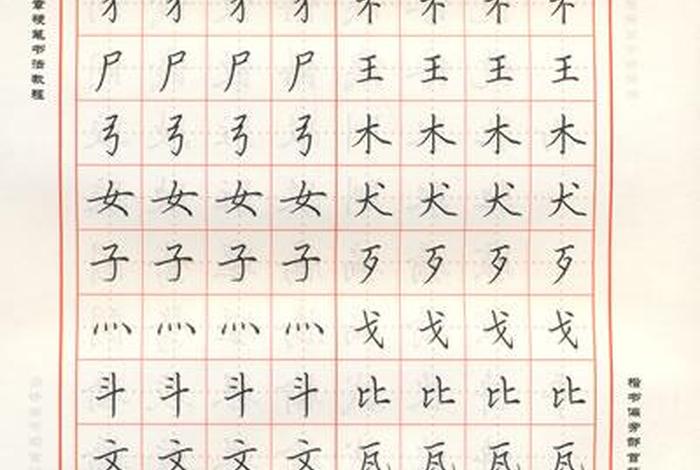 章硬笔书法教程
尸尸尸尸王王王王
弓弓弓弓木木木木
女女女女犬犬犬犬
子子子子歹歹歹歹
灬灬灬灬戈戈戈戈
斗斗斗斗比比比比
文文文文瓦瓦瓦瓦
楷书偏旁部首